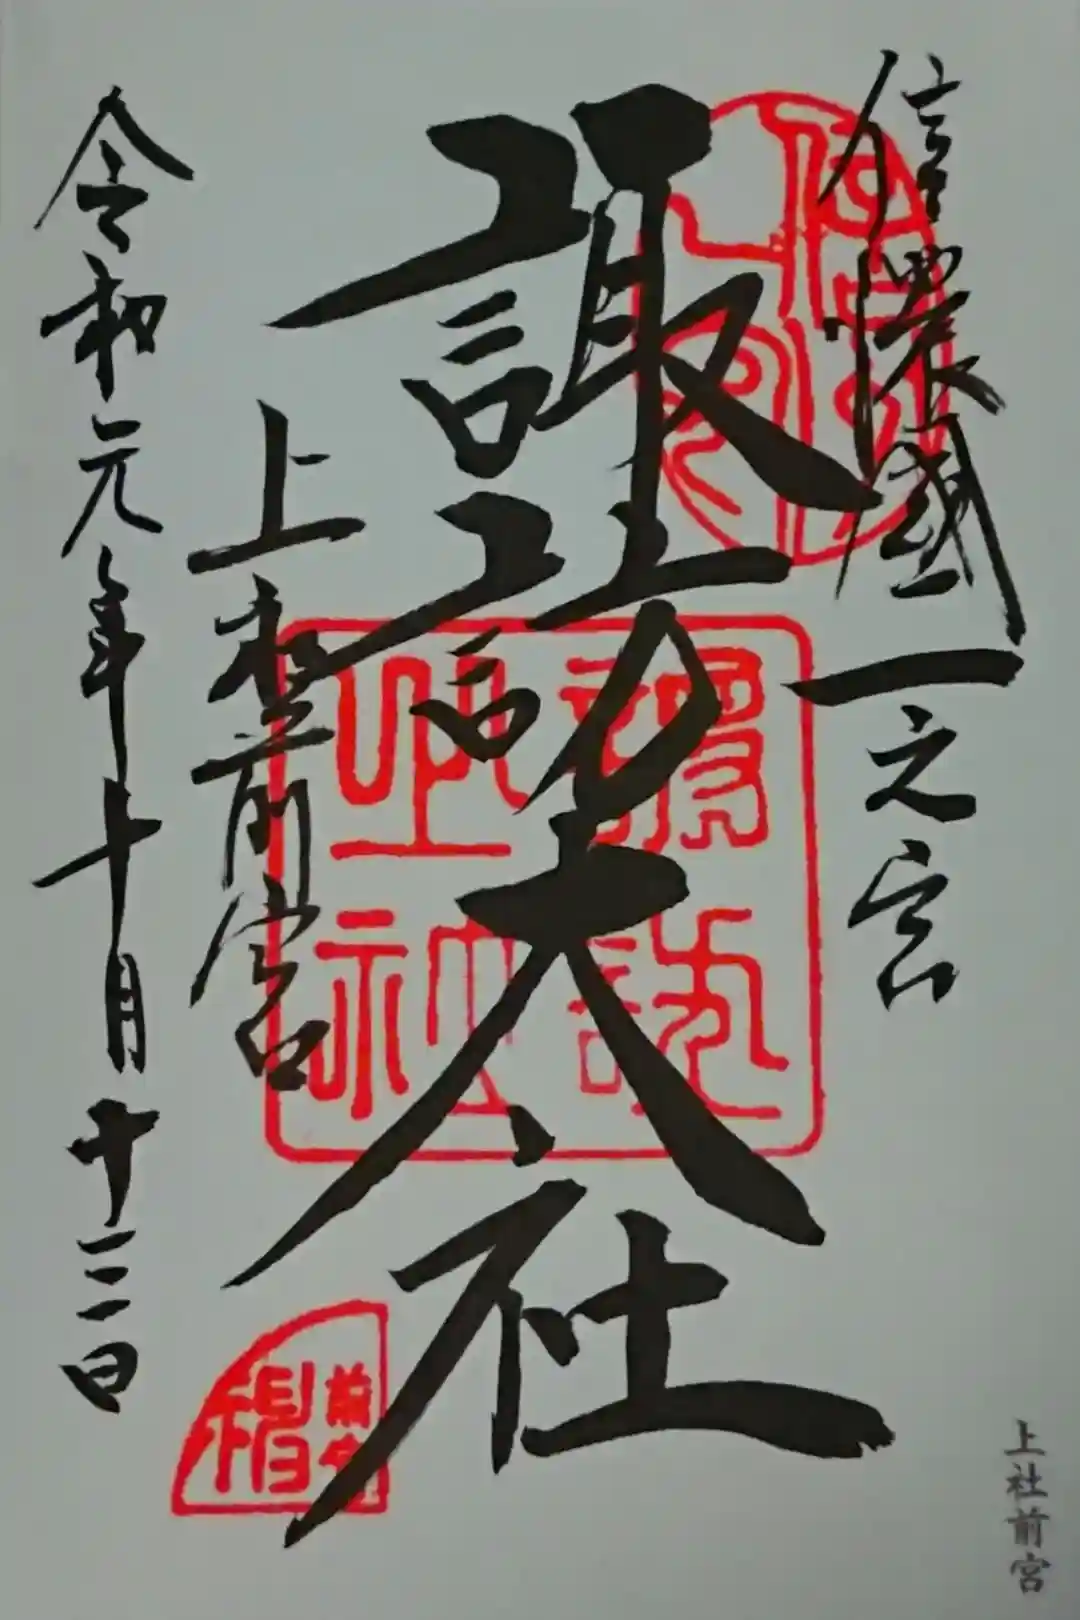 信濃國一之宮
諏訪大社
上社前宮
令和元年十月十三日
上社前宮